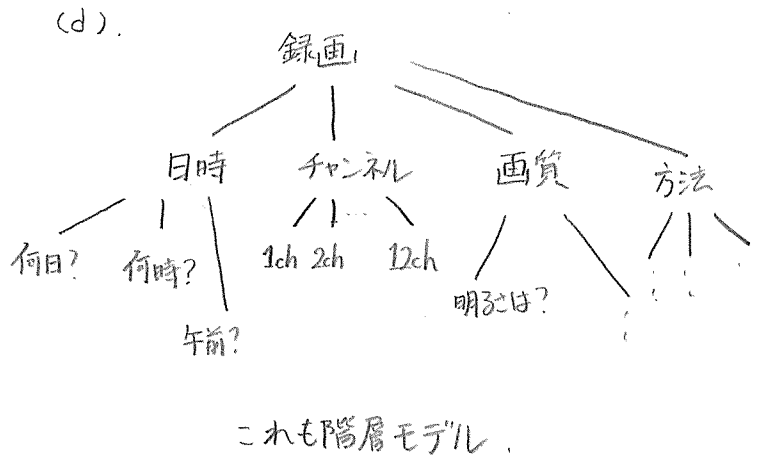 (d).
録画
日時 チャンネル 画質 方法
何日? 何時? 1ch 2ch ... 12ch
明るさは?
午前?
これも階層モデル.